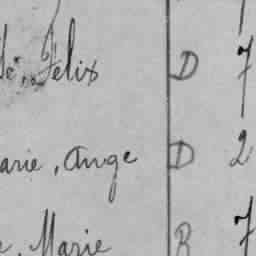 Félix D 7
arie, Ange D 2
Marie B 7